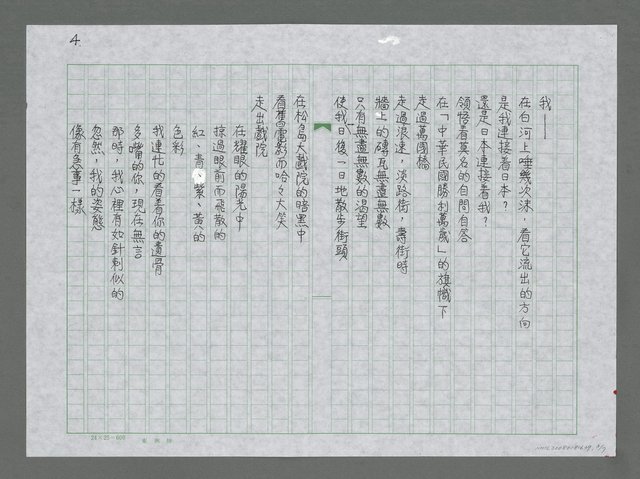 4.
我——
在白河上唾幾次沫，看它流出的方向
是我連接着日本？
還是日本連接着我？
領悟着莫名的自問自答
在「中華民國勝利萬歲」的旗幟下
走過萬國橋
走過浪速街，淡路街，壽街時
牆上的磚瓦無盡無數
只有無盡無數的渴望
使我日後一日地散步街頭
在松島大戲院的暗黑中
看舊電影而哈々大笑
走出戲院
在耀眼的陽光中
掠過眼前而飛散的
紅、青、紫、黃的
色彩
我連忙的看着你的遺骨
多嘴的你，現在無言
那時，我心裡有如針刺似的
忽然，我的姿態
像有急事一樣
24×25=600